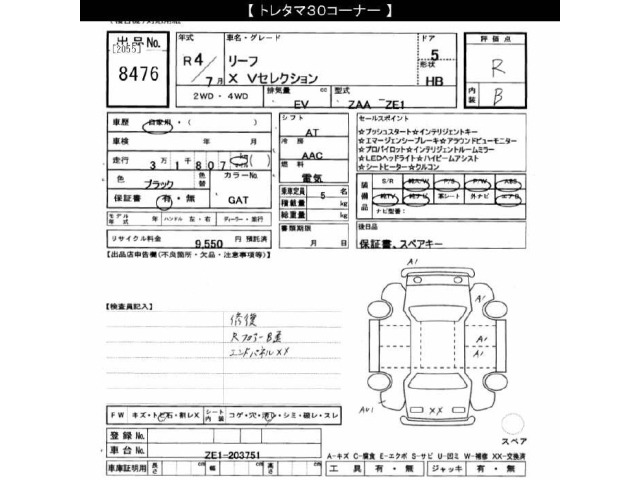 【 トレタマ30コーナー 】
出品No.
[2055]
8476
年式
R4/7月
車名・グレード
リーフ
X Vセレクション
ドア
5
形状
HB
評価点
R
内装
B
2WD ・ 4WD
排気量
cc
EV
型式
ZAA ZE1
車歴
自家用・( )
車検 年 月
走行
3万1千807 km ( )
色
ブラック
色替
カラーNo.
GAT
保証書 有・無
モデル年式 年 ハンドル 左・右 ディーラー・並行
リサイクル料金 9,550 円 預託済
シフト
AT
冷房
AAC
燃料
電気
乗車定員 5 名
積載量 kg
総重量 kg
書類期限
月 日
セールスポイント
☆プッシュスタート☆インテリジェントキー
☆エマージェンシーブレーキ☆アラウンドビューモニター
☆プロパイロット☆インテリジェントルームミラー
☆LEDヘッドライト☆ハイビームアシスト
☆シートヒーター☆クルコン
装備品
S/R 純A/W P/S P/W ABS
純TV 純ナビ 革シート 外ナビ エアB
ナビ型番:
後日品
保証書、スペアキー
【出品店申告欄(不良箇所・欠品・注意事項等)】
【検査員記入】
修復
Rフロアー曲
エンドパネルXX
A1
A1
A1
A1
AU1
XX
FW キズ・トビ石・割レX
シート内装 コゲ・穴・汚レ・シミ・破レ・スレ
登録No.
車台No. ZE1-203751
スペア
A-キズ C-腐食 E-エクボ S-サビ U-凹ミ W-補修 XX-交換済
車庫証明用 長さ cm 幅 cm 高さ cm
工具 有・無 ジャッキ 有・無